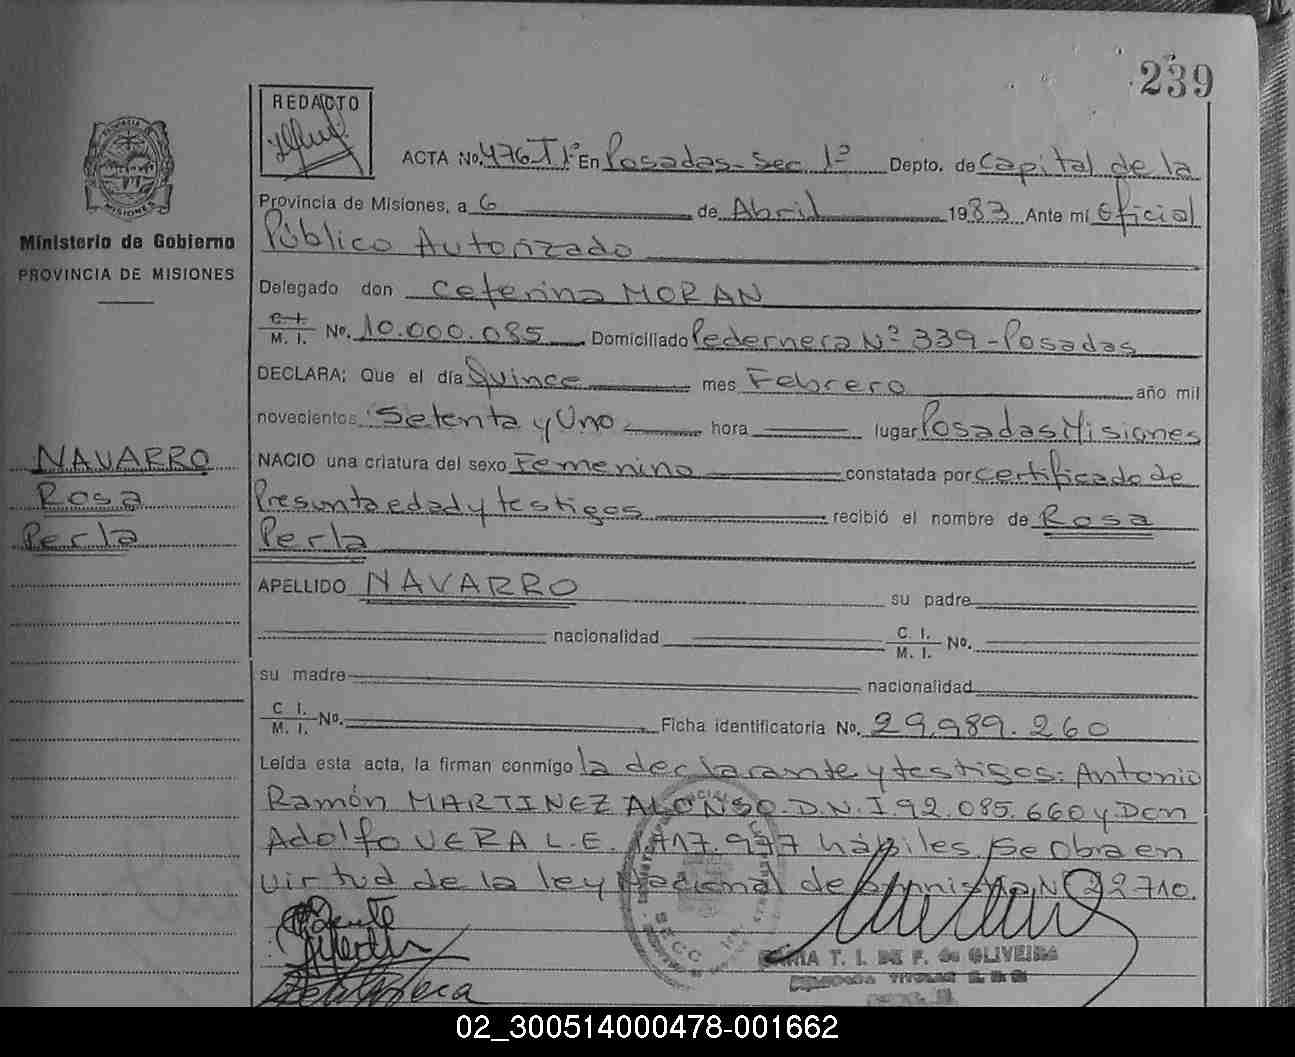 239
REDACTO
ACTA No. 476 T 1º En Posadas - Sec 1º Depto. de Capital de la
Provincia de Misiones, a 6 de Abril 1983 Ante mí Oficial
Público Autorizado
Delegado don Ceferina MORAN
C. I.
M. I. No. 10.000.085 Domiciliado Pedernera Nº 339 - Posadas
DECLARA: Que el día Quince mes Febrero año mil
novecientos Setenta y Uno hora lugar Posadas Misiones
NACIO una criatura del sexo Femenino constatada por certificado de
Presunta edad y testigos recibió el nombre de Rosa
Perla
APELLIDO NAVARRO su padre
nacionalidad C. I.
M. I. No.
su madre nacionalidad
C I.
M. I. No. Ficha identificatoria No. 29.989.260
Leída esta acta, la firman conmigo la declarante y testigos: Antonio
Ramón MARTINEZ ALONSO D.N.I. 92.085.660 y Don
Adolfo VERA L.E. 717.977 hábiles. Se Obra en
virtud de la ley Nacional de Nº 22710.
T. I. DE F. de OLIVEIRA
PROVINCIA DE MISIONES
Ministerio de Gobierno
PROVINCIA DE MISIONES
NAVARRO
Rosa
Perla
02_300514000478-001662